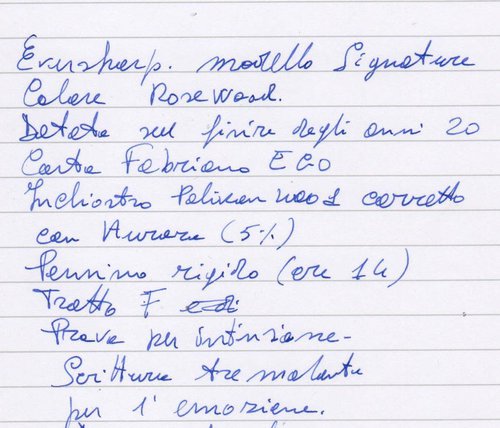 Eversharp. modello Signature
Colore Rosewood.
Datata sul finire degli anni 20
Carta Fabriano EGO
Inchiostro Pelikan 4001 corretto
con Aurora (5%)
Pennino rigido (oro 14)
Tratto F
Prova per intinzione-
Scrittura tremolante
per l'emozione.